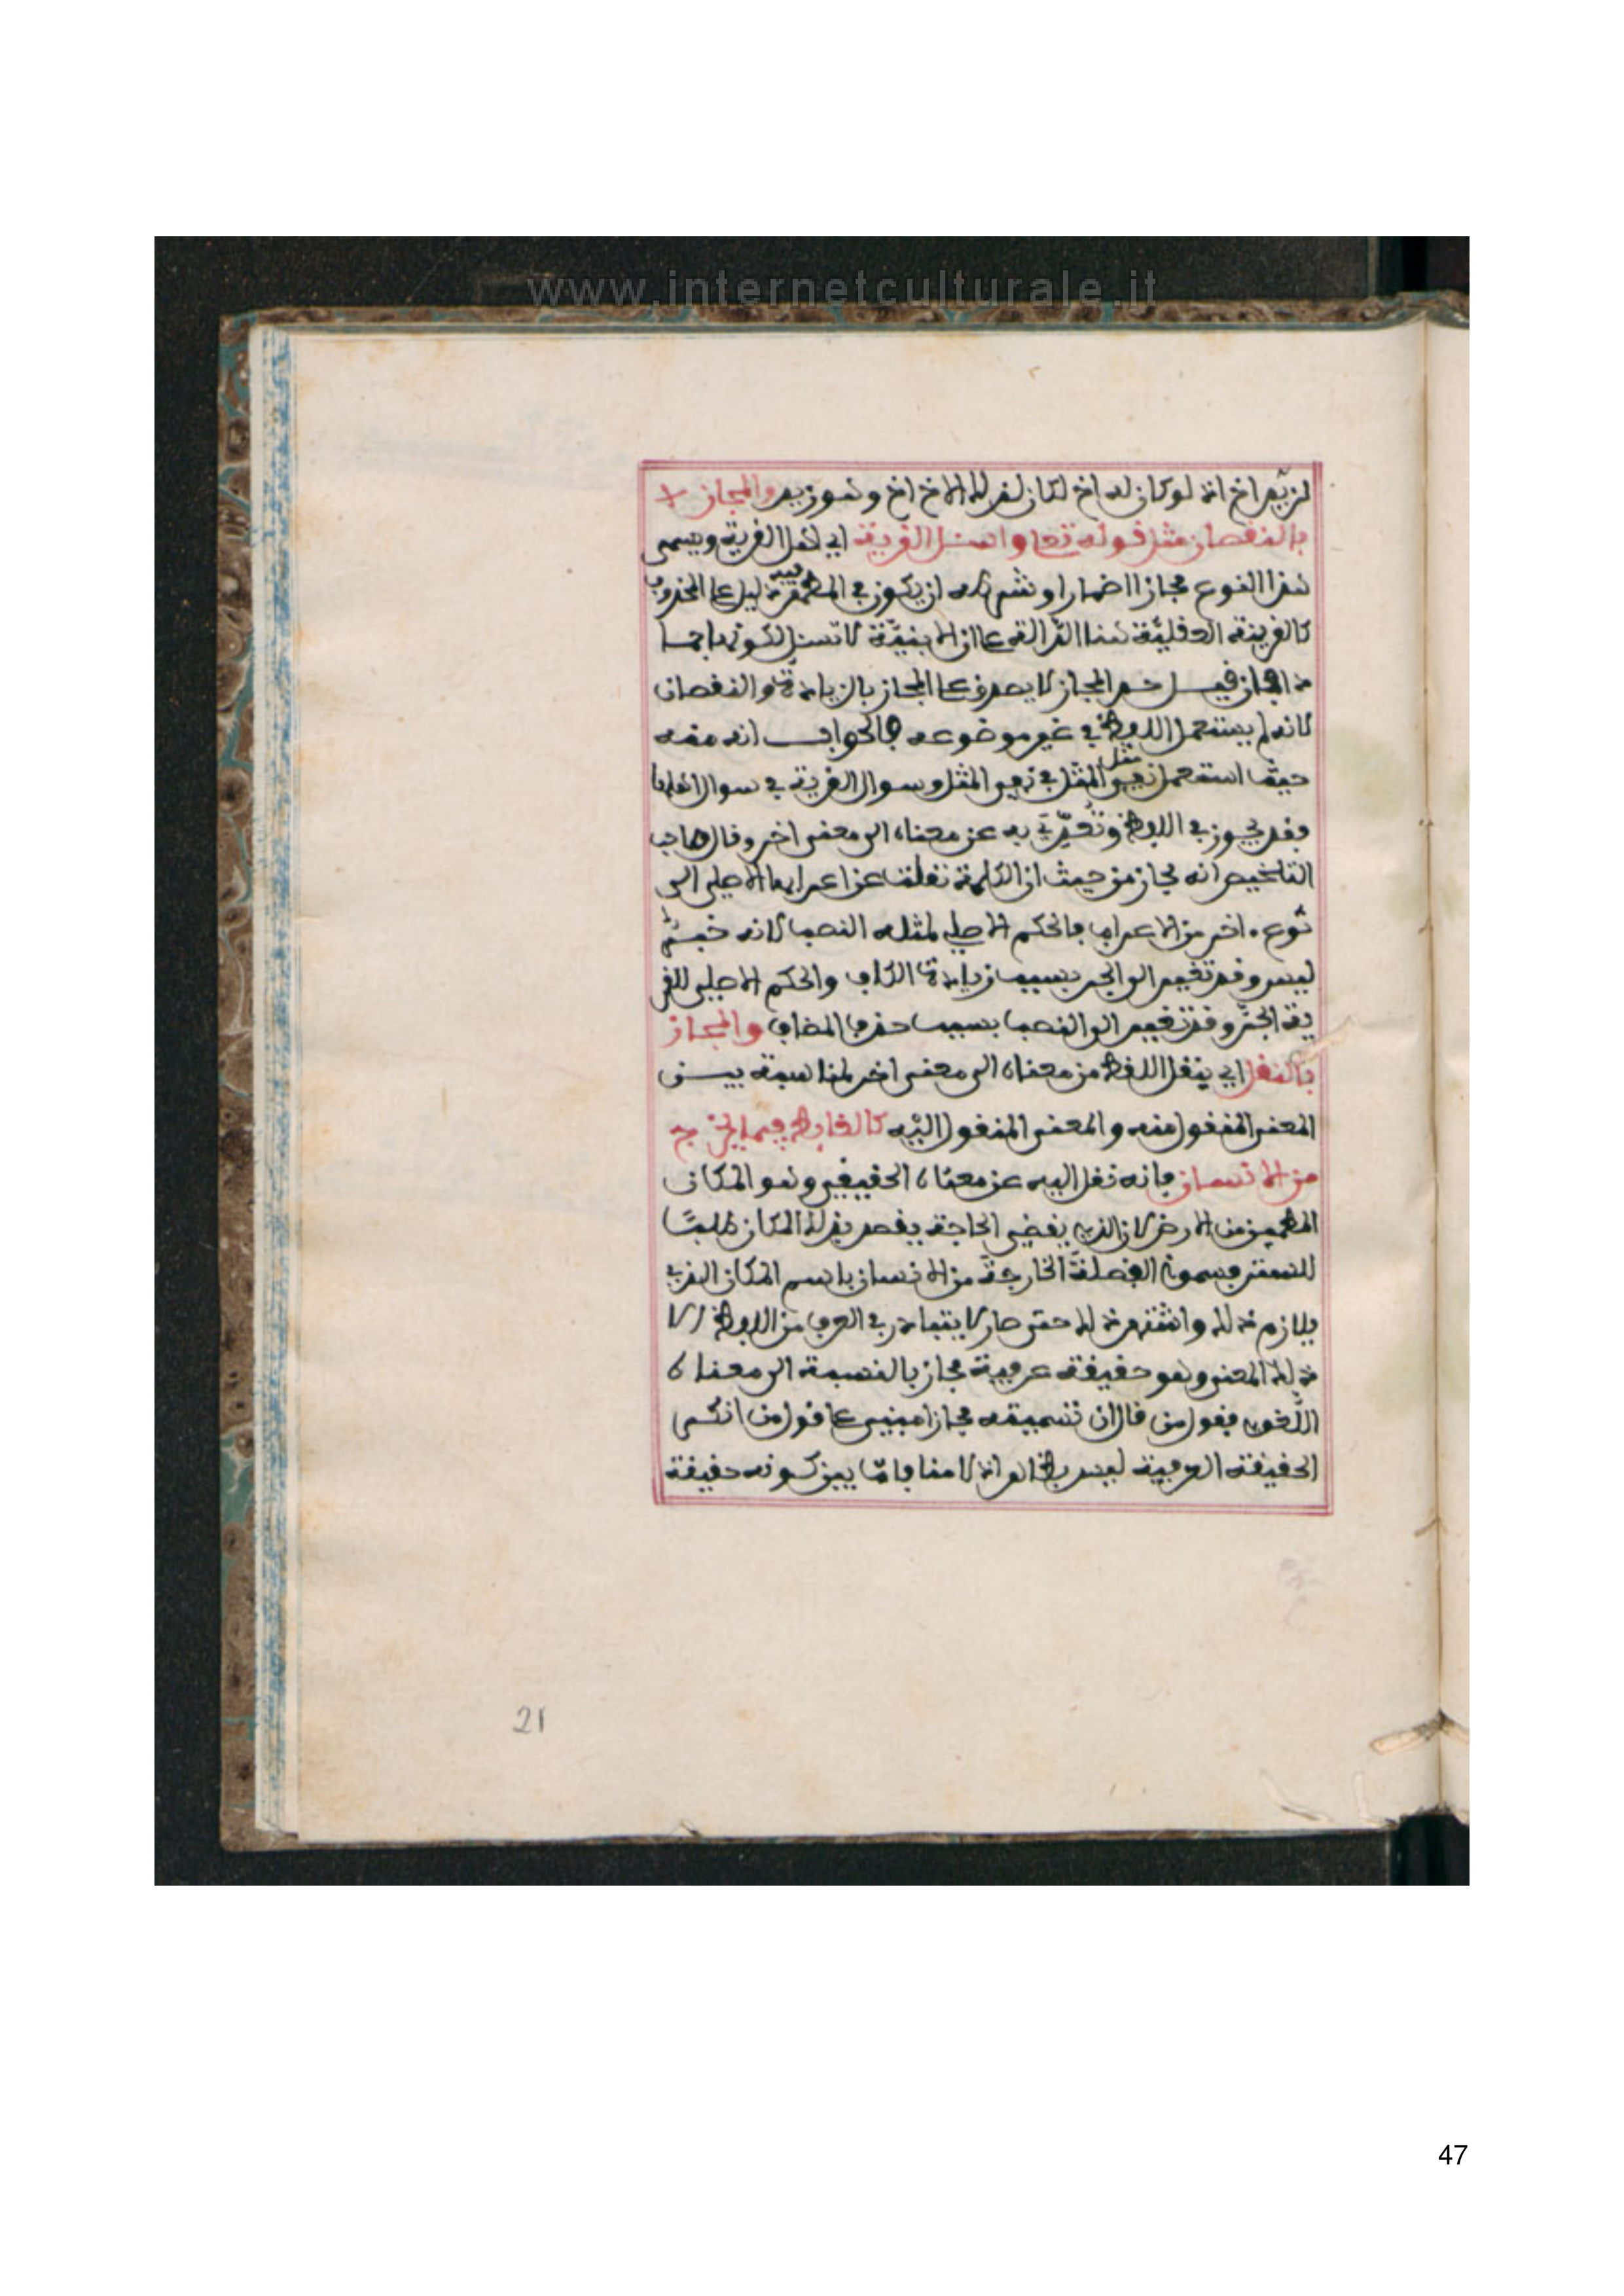 www.internetculturale.it
لزيد اخ اذ لو كان له اخ لكان لذلك الاخ اخ وهو زيد والمجاز
بالنقصان مثل قوله تعلى واسئل القرية اي اهل القرية ويسمى
هذا النوع مجاز الاضمار او شرطه ان يكون في المظهر دليل على المحذوف
كالقرينة العقلية هنا الدالة على ان الابنية لا تسئل لكونها جمادا
فان قيل حد المجاز لا يصدق على المجاز بالزيادة والنقصان
لانه لم يستعمل اللفظ في غير موضوعه فالجواب انه منه
حيث استعمل نفي مثل المثل في نفي المثل وسوال القرية في سوال اهلها
فقد تجوز في اللفظ وتعدي به عن معناه الى معنى اخر وقال صاحب
التلخيص انه مجاز من حيث ان الكلمة نقلت عن اعرابها الاصلي الى
نوع اخر من الاعراب فالحكم الاصلي لمثله النصب لانه خبر
ليس وقد تغير الى الجر بسبب زيادة الكاف والحكم الاصلي للقر
ية الجر وقد تغير الى النصب بسبب حذف المضاف والمجاز
بالنقل اي ينقل اللفظ من معناه الى معنى اخر لمناسبة بين
المعنى المنقول منه والمعنى المنقول اليه كالغايط فيما يخرج
من الانسان فانه نقل اليه عن معناه الحقيقي وهو المكان
المطمئن من الارض لان الذي يقضي الحاجة يقصد ذلك المكان طلبًا
للستر فسموا الفضلة الخارجة من الانسان باسم المكان الذي
يلازم ذلك واشتهر ذلك حتى صار لا يتبادر في العرف من اللفظ الا
ذلك المعنى وهو حقيقة عرفية مجاز بالنسبة الى معناه
اللغوي فقول من قال ان تسميته مجازا مبني على قول من انكر
الحقيقة العرفية ليس بظاهر اذ لا منافاة بين كونه حقيقة
21
47